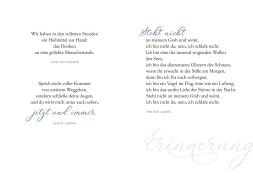 Wir haben in den trübsten Stunden
ein Heilmittel zur Hand:
das Denken
an eine geliebte Menschenseele.
Sprich nicht voller Kummer
von meinem Weggehen,
sondern schließe deine Augen,
und du wirst mich unter euch sehen,
jetzt und immer
KHALIL GIBRAN
Steht nicht
an meinem Grab und weint,
ich bin nicht da, nein, ich schlafe nicht.
Ich bin eine der tausend wogenden Wellen
des Sees,
ich bin das diamantene Glitzern des Schnees,
wenn ihr erwacht in der Stille am Morgen,
dann bin ich für euch verborgen,
ich bin ein Vogel im Flug, leise wie ein Luftzug,
ich bin das sanfte Licht der Sterne in der Nacht.
Steht nicht an meinem Grab und weint,
ich bin nicht da, nein, ich schlafe nicht.
Erinnerung